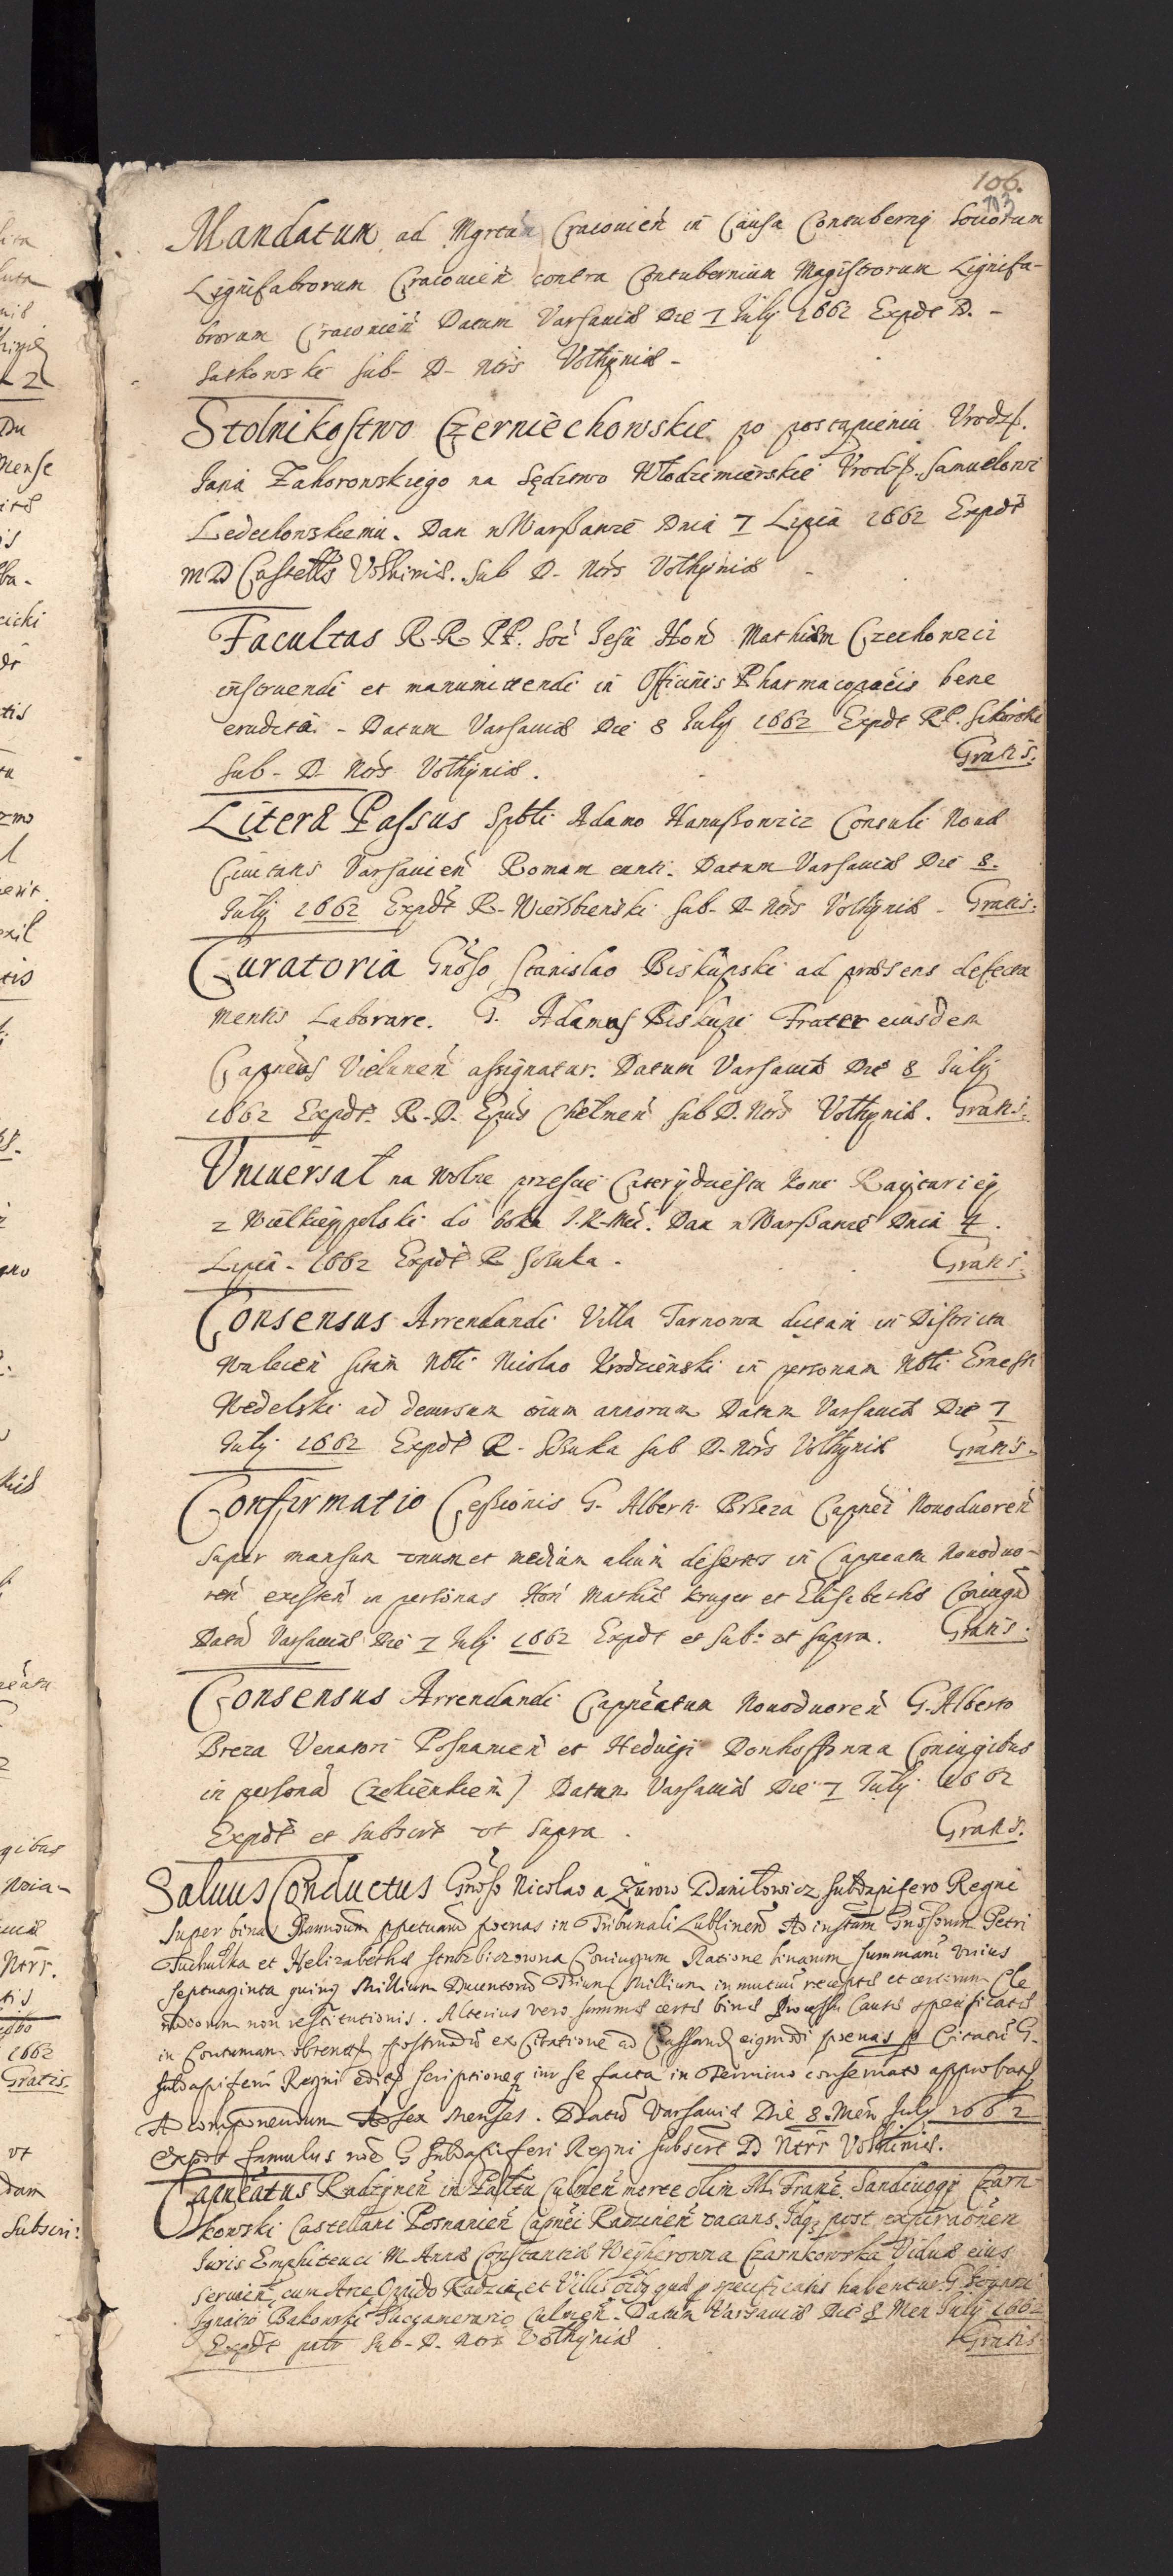 106.
113
Mandatum ad Mgrtũ Cracovieñ in Causa Contubernij Sociorum
Lignifabrorum Cracovieñ contra Contubernium Magistrorum Lignifa-
brorum Cracovieñ Datum Varsaviæ Die 7 July 1662 Expdt D. -
Satkowski sub- D- Nőris Volhyniæ -
Stolnikostwo Czerniechowskie po postąpieniu Vrodzº.
Jana Zahorowskiego na Sędztwo Włodzimierskie Vrodzº. Samuelowi
Ledechowskiemu. Dan w Warszawie Dnia 7 Lipca 1662 Expdt
M D Castellȯ Volhiniæ. Sub D- Nős Volhyniæ -
Facultas R-R PP. Soc̃ Jesu Hon̄ Mathiam Czechowicz
instruendi et manumittendi in Officinis Pharmacopaeis bene
eruditũ. - Datum Varsaviæ Die 8 July 1662 Expdt RP. Sikorski
Sub- D- Nős Volhyniæ. Gratis.
Literæ Passus Spbli Adamo Hanuszowicz Consuli Novæ
Civitatis Varsavieñ Romam eunti. Datum Varsaviæ Die 8.
July 1662 Expdt R- Wierzbienski sub- D- Nős Volhyniæ - Gratis.
Curatoria Gnőso Stanislao Biskupski ad præsens defectu
mentis Laborare. G. Adamus Biskupi Frater eiusdem
Capneus Vieluneñ assignatur. Datum Varsaviæ Die 8 July
1662 Expdt. R-D. Epũs Chelmeñ sub D. Nős Volhyniæ. Gratis.
Vniuersał na wolne przescie Czterydziesta koni Raytariey
z Wielkieypolski do boku J.K-Mci. Dan w Warszawie Dnia 4.
Lipca - 1662 Expdt R Szuka. Gratis.
Consensus Arrendandi Villa Tarnowa dictam in Districtu
Walceñ sitam Nbli Nicolao Krodzienski in personam Nbli Ernesti
Wedelski ad decursum trium annorum Datum Varsaviæ Die 7
July 1662 Expdt R- Szuka sub D-Nős Volhyniæ Gratis.
Confirmatio Cessionis G- Alberti Breza Capnei Novodvoreñ
super mansum unum et medium alium desertos in Capneatu Novodvo-
reñ existeñ in personas Hon̄ Mathiæ Kruger et Elisebethæ Coniugũ
Datũ Varsaviæ Die 7 July 1662 Expdt et sub: ut supra. Gratis.
Consensus Arrendandi Capneatum Novodvoreñ G. Alberto
Breza Venatori Posnanieñ et Hedvigi Donhoffonna Coniugibus
in personã Datum Varsaviæ Die 7 July 1662
Expdt et subscrt ut supra. Gratis.
Saluus Conductus Gnőso Nicolao a Żurow Daniłowicz Subdapifero Regni
super binas Bannũm ppetuarũ poenas in Tribunali Lublineñ Ad instam Gnősorum Petri
et Helizabethæ Coniugum Ratione binarum summarũ vnius
septuaginta quinq̨ Millium Ducentorũ Trium Millium in mutuũ receptæ et certorum Cle
nodiorum non restitutionis. Alterius vero summæ certæ binis Processu Causæ specificatis
in Contumam obtentas postmodũ ex Citatione ad Cassand eigmodi poenas p Citatũ G-
Subdapiferũ Regni editas scriptioneq̨ inr se facta in Termino conservato approbatas
Ad componendum Ad sex Menses. Datũ Varsaviæ Die 8. Meñ July 1662
expdt famulus G Subdapiferi Regni subscrt D Ntri Volhiniæ.
Capneatus Radzyneñ in Palatu Culmeñ morte olim M. Franc̃. Sandivogij Czarn-
kowski Castellani Posnanieñ Capnei Radzineñ vacans. Idq̨ post expiraõnem
Juris Emphiteuci M. Annæ Constantiæ Weyherowna Czarnkowska Viduæ eius
servieñ, cum Arce Oppido Radzin et Villis oibg̨ quæ p specificatis habentur G
Ignatio Bakowski Succamerario Culmeñ. Datum Varsaviæ Die 8 Men July 1662
Expdt Sub- D. Nős Volhyniæ Gratis